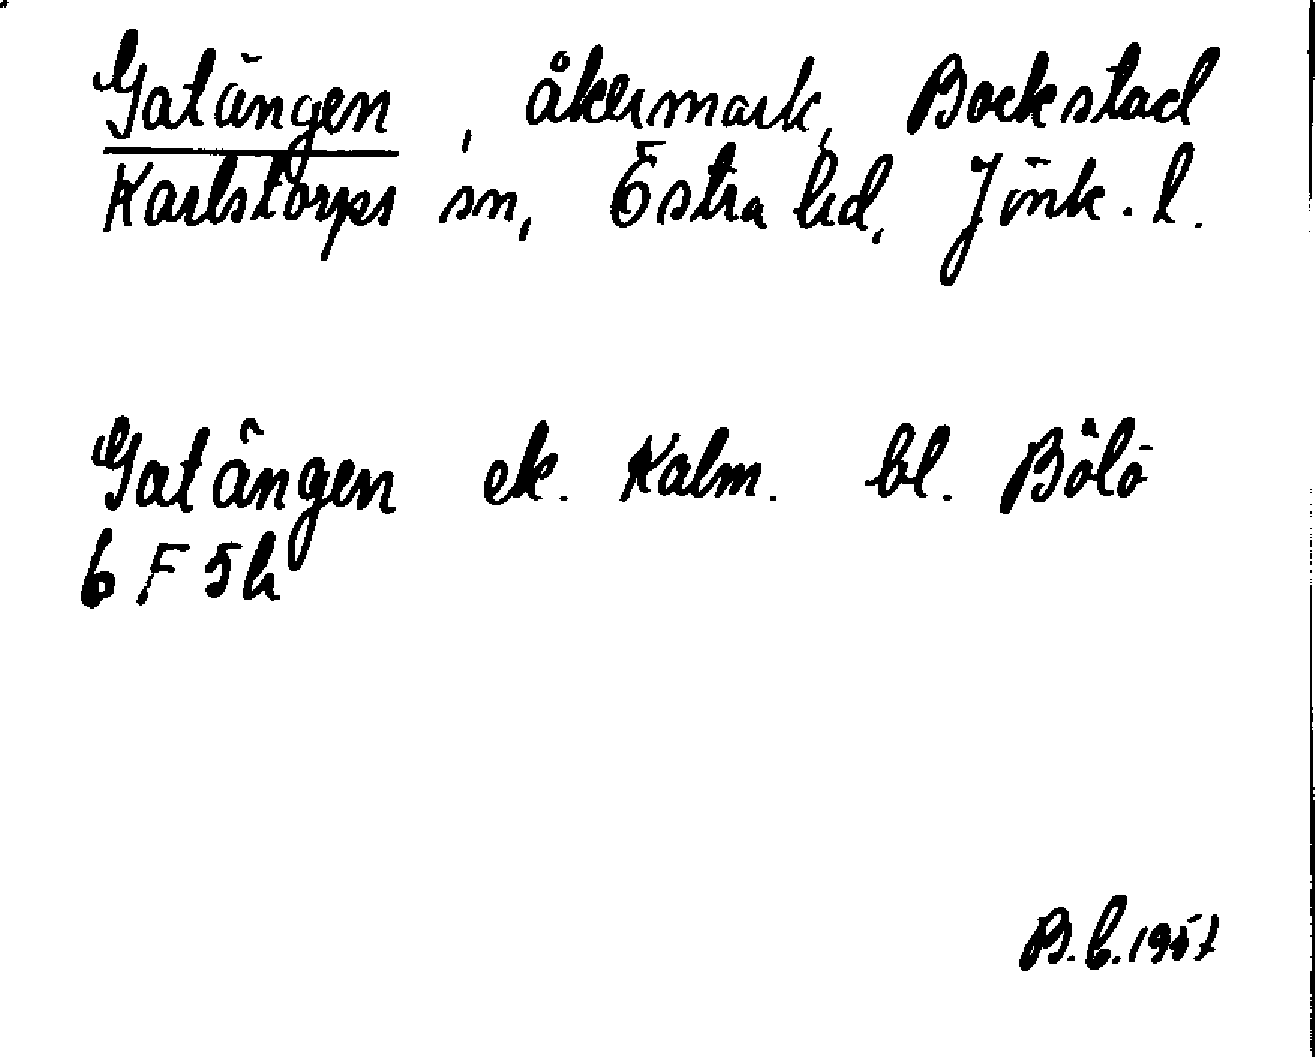 Gatängen, åkermark, Bockstad
Karlstorps sn, Östra hd, Jönk. l.
Gatängen ek. Kalm. bl. Bölö
6 F 5 h
B.C. 1957